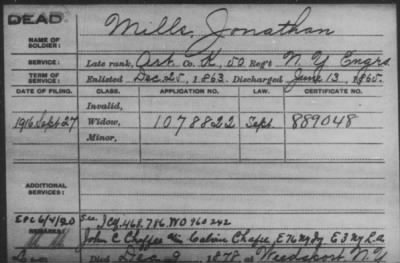 DEAD.
NAME OF SOLDIER: Mills, Jonathan
SERVICE: Late rank, Art. Co. K, 50 Regt N. Y. Engrs
TERM OF SERVICE: Enlisted Dec 25, 1863. Discharged June 13, 1865.
DATE OF FILING. CLASS. APPLICATION NO. LAW. CERTIFICATE NO.
Invalid,
1916 Sept 27 Widow, 1078822 Sept. 889048
Minor,
ADDITIONAL SERVICES:
See J C 468,786. WO 960242
REMARKS: John C Chaffee Calvin Chafee, E 76 N.Y. E 3 N.Y. L.a.
Died Dec 9, 1878, at Weedsport N.Y.